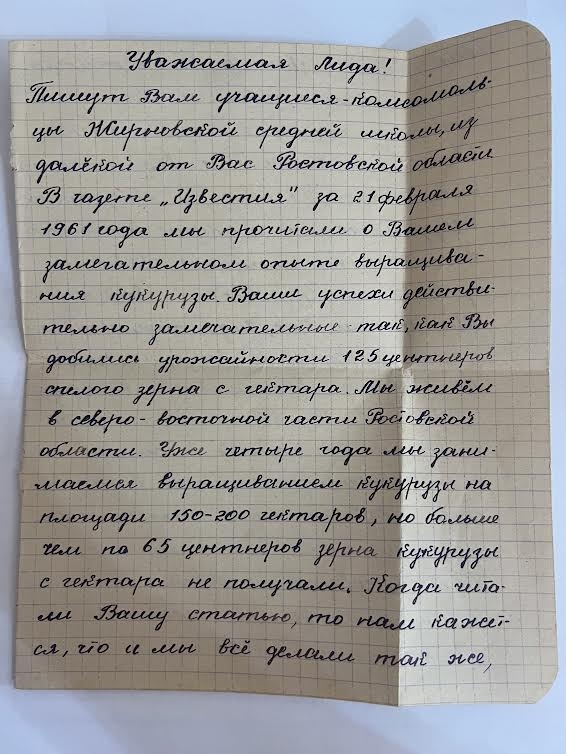 Уважаемая Лида!
Пишут Вам учащиеся-комсомоль-
цы Жирновской средней школы, из
далёкой от Вас Ростовской области
В газете „Известия" за 21 февраля
1961 года мы прочитали о Вашем
замечательном опыте выращива-
ния кукурузы. Ваши успехи действи-
тельно замечательные так, как Вы
добились урожайности 125 центнеров
спелого зерна с гектара. Мы живём
в северо-восточной части Ростовской
области. Уже четыре года мы зани-
маемся выращиванием кукурузы на
площади 150-200 гектаров, но больше
чем по 65 центнеров зерна кукурузы
с гектара не получали. Когда чита-
ли Вашу статью, то нам кажет-
ся, что и мы всё делали так же,